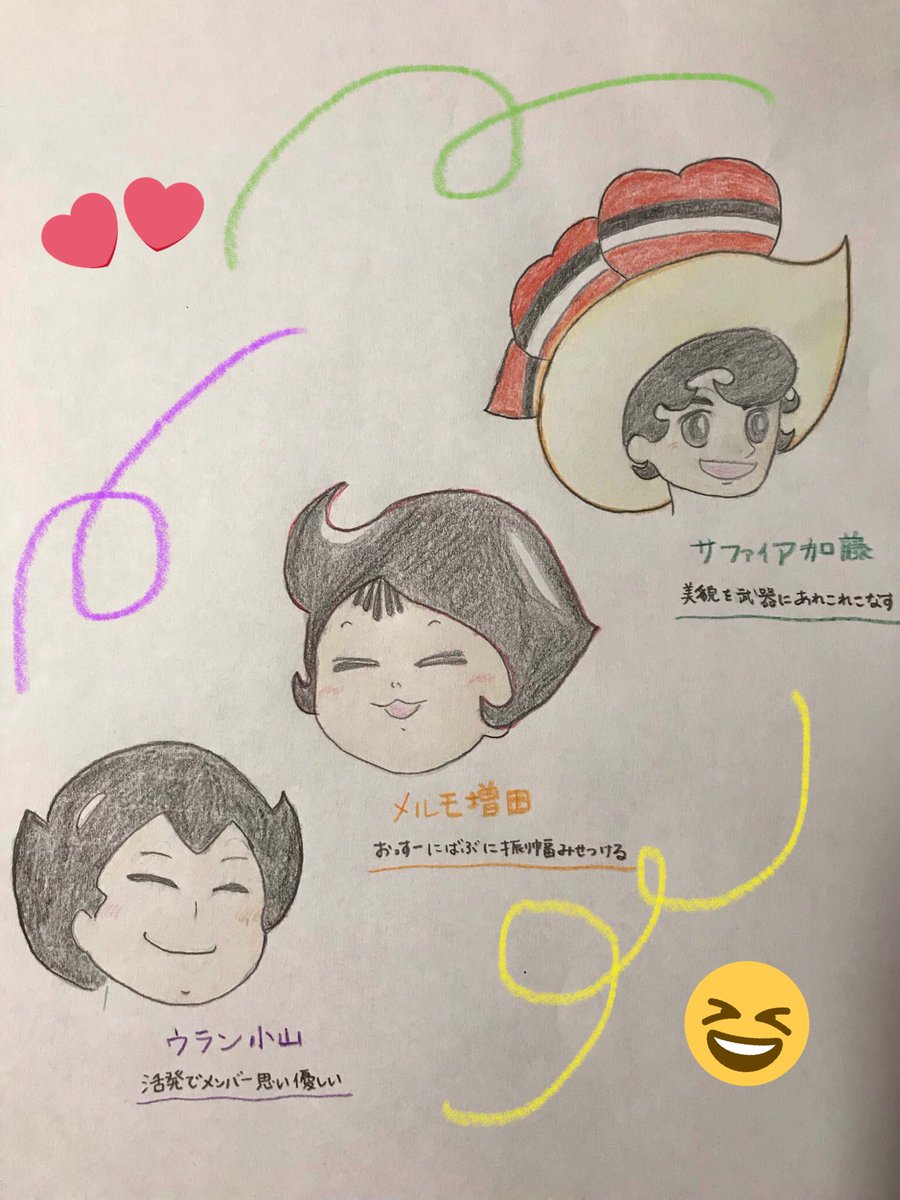 サファイア加藤
美貌を武器にあれこれこなす
メルモ増田
おっすーにばぶに振り幅みせつける
ウラン小山
活発でメンバー思い優しい